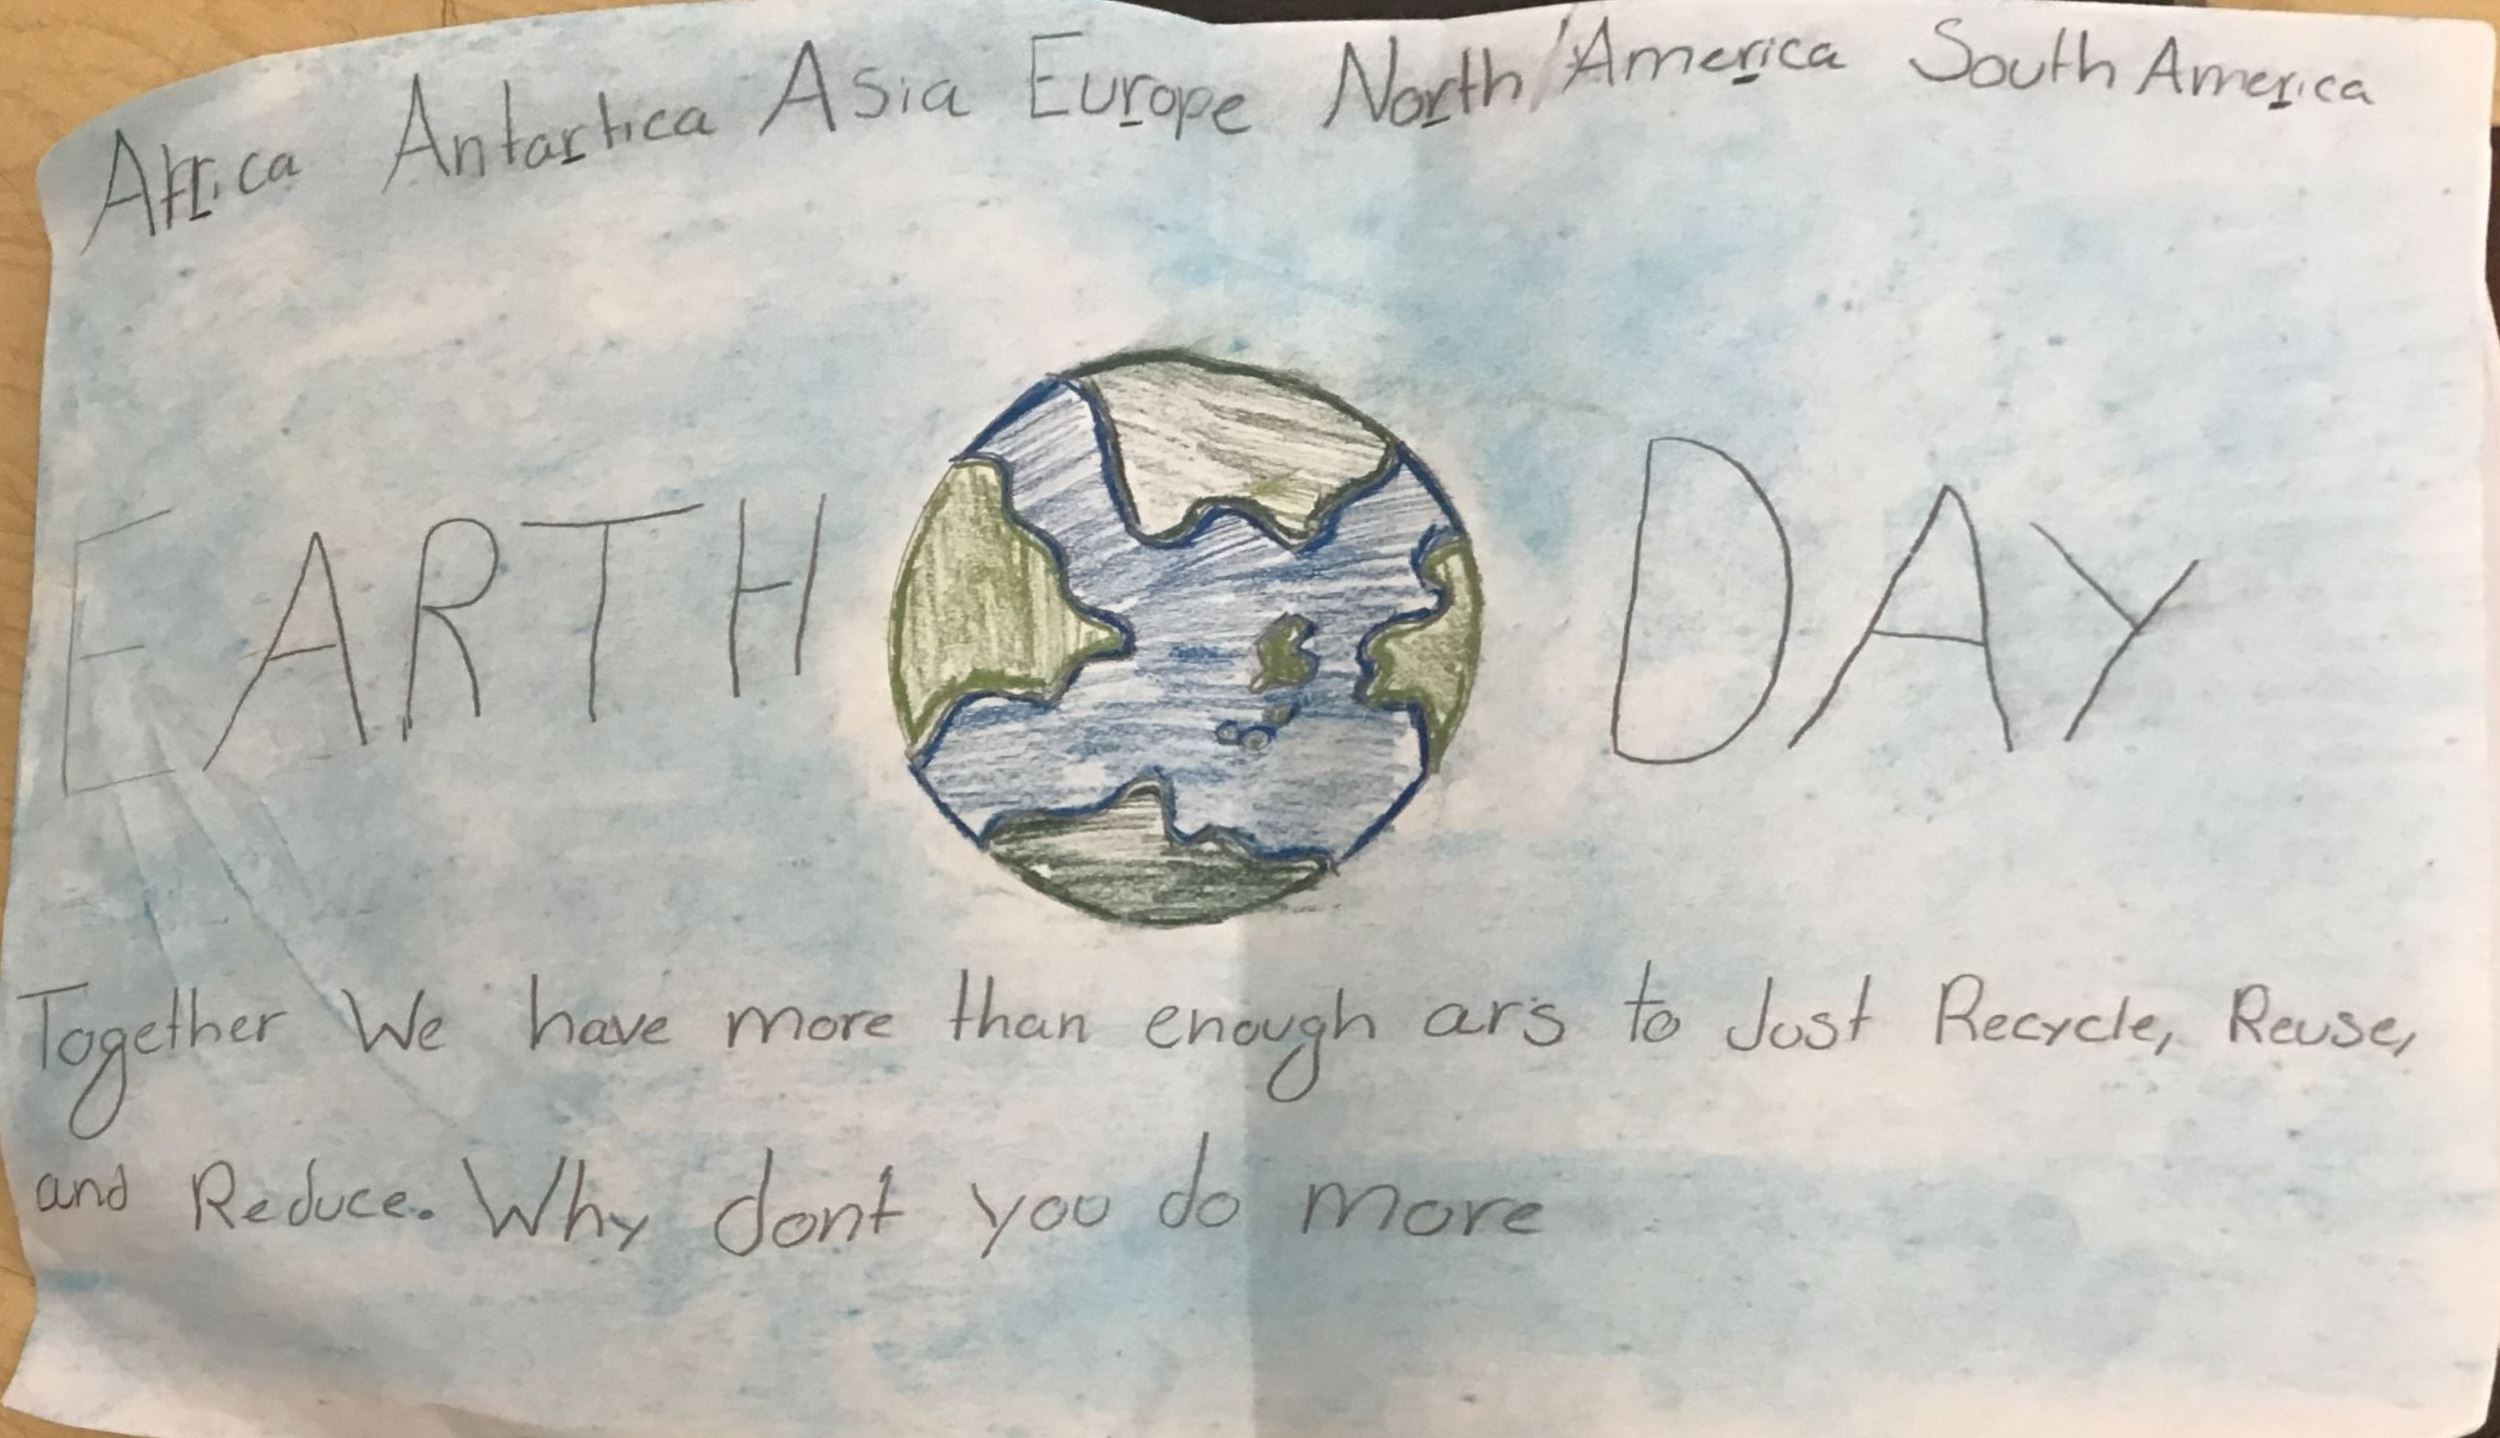 Africa Antartica Asia Europe North America South America
EARTH DAY
Together We have more than enough ars to Just Recycle, Reuse,
and Reduce. Why dont you do more